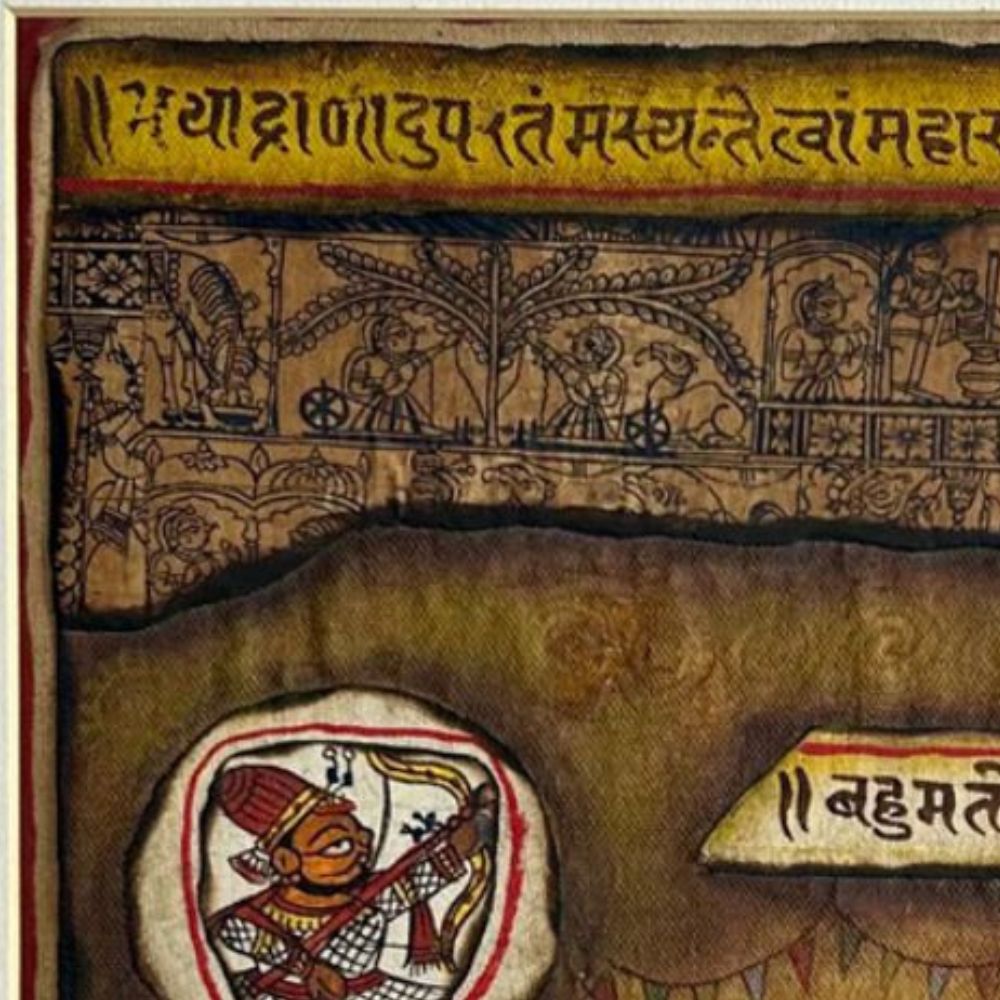 ॥भयाद्राणादुपरतंमस्यन्तेत्वांमहार
॥बहुमतो